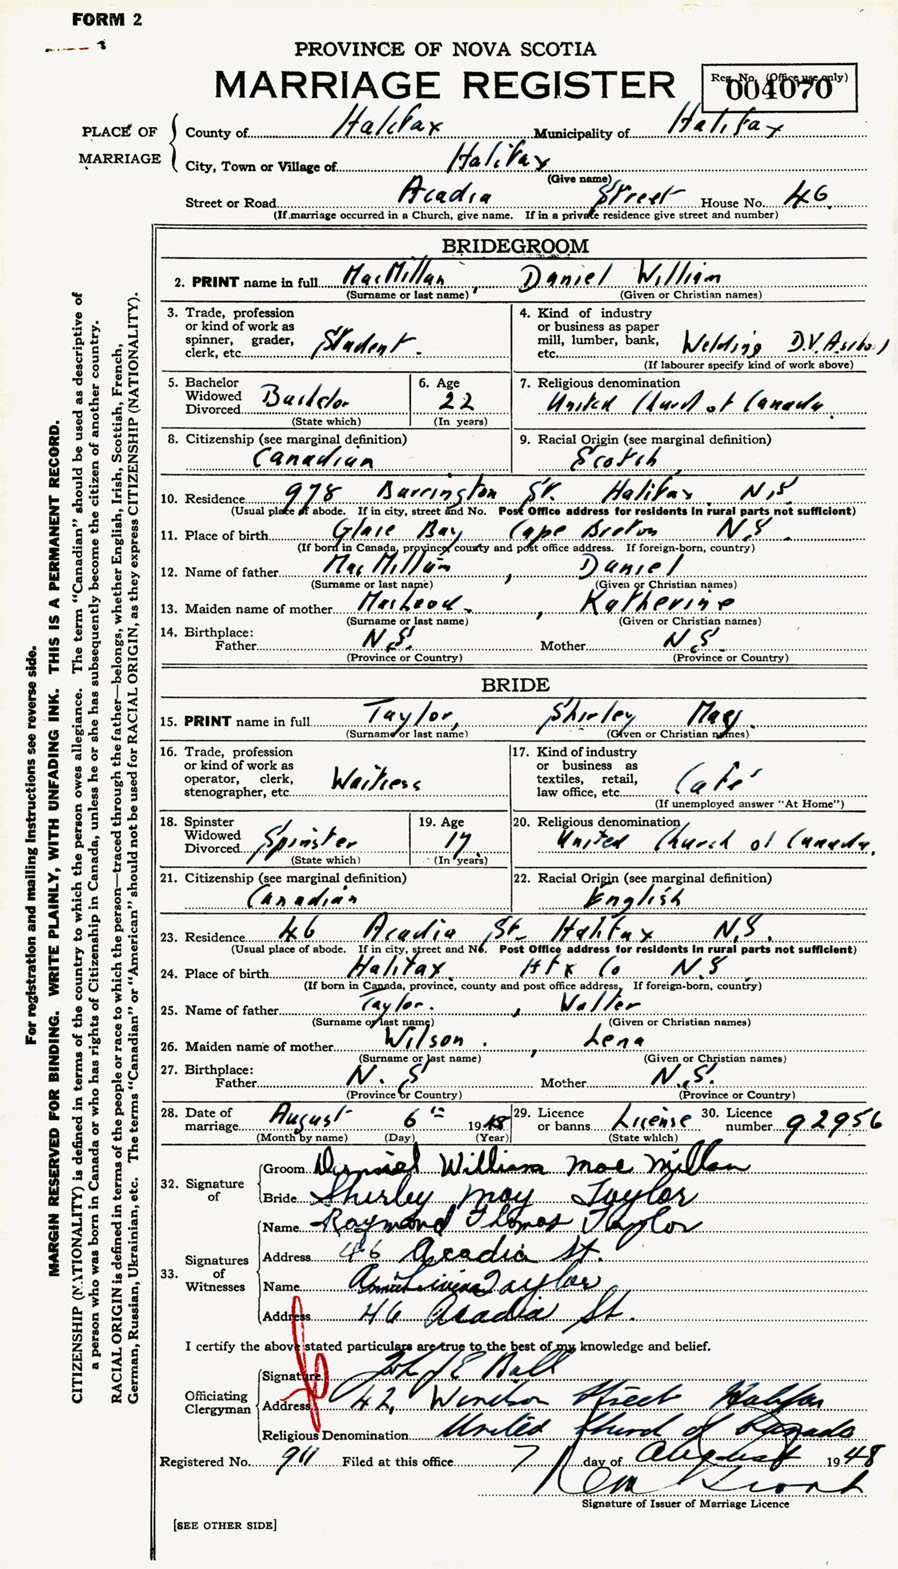 FORM 2
PROVINCE OF NOVA SCOTIA
MARRIAGE REGISTER
Reg. No. (Office use only)
004070
PLACE OF MARRIAGE
County of Halifax Municipality of Halifax
City, Town or Village of Halifax
(Give name)
Street or Road Acadia Street House No. 46
(If marriage occurred in a Church, give name. If in a private residence give street and number)
BRIDEGROOM
2. PRINT name in full MacMillan, Daniel William
(Surname or last name) (Given or Christian names)
3. Trade, profession or kind of work as spinner, grader, clerk, etc. Student.
4. Kind of industry or business as paper mill, lumber, bank, etc. Welding D.V.A.
(If labourer specify kind of work above)
5. Bachelor Widowed Divorced Bachelor
(State which)
6. Age 22
(In years)
7. Religious denomination United Church of Canada.
8. Citizenship (see marginal definition) Canadian
9. Racial Origin (see marginal definition) Scotch
10. Residence 978 Barrington St. Halifax N.S
(Usual place of abode. If in city, street and No. Post Office address for residents in rural parts not sufficient)
11. Place of birth Glace Bay Cape Breton N.S
(If born in Canada, province, county and post office address. If foreign-born, country)
12. Name of father MacMillan, Daniel
(Surname or last name) (Given or Christian names)
13. Maiden name of mother MacLeod, Katherine
(Surname or last name) (Given or Christian names)
14. Birthplace: Father N.S. Mother N.S
(Province or Country) (Province or Country)
BRIDE
15. PRINT name in full Taylor, Shirley May
(Surname or last name) (Given or Christian names)
16. Trade, profession or kind of work as operator, clerk, stenographer, etc. Waitress
17. Kind of industry or business as textiles, retail, law office, etc. Cafe'
(If unemployed answer "At Home")
18. Spinster Widowed Divorced Spinster
(State which)
19. Age 17
(In years)
20. Religious denomination United Church of Canada.
21. Citizenship (see marginal definition) Canadian
22. Racial Origin (see marginal definition) English
23. Residence 46 Acadia St. Halifax N.S.
(Usual place of abode. If in city, street and No. Post Office address for residents in rural parts not sufficient)
24. Place of birth Halifax Hfx Co N.S
(If born in Canada, province, county and post office address, If foreign-born, country)
25. Name of father Taylor, Walter
(Surname or last name) (Given or Christian names)
26. Maiden name of mother Wilson, Lena
(Surname or last name) (Given or Christian names)
27. Birthplace: Father N.S Mother N.S.
(Province or Country) (Province or Country)
28. Date of marriage August 6th 1948
(Month by name) (Day) (Year)
29. Licence or banns License
(State which)
30. Licence number 92956
32. Signature of
Groom Daniel William MacMillan
Bride Shirley May Taylor
33. Signatures of Witnesses
Name Raymond Thomas Taylor
Address 46 Acadia St.
Name Taylor
Address 46 Acadia St.
I certify the above stated particulars are true to the best of my knowledge and belief.
Officiating Clergyman
Signature John E Ball
Address 42 Windsor Street Halifax
Religious Denomination United Church of Canada
Registered No. 911 Filed at this office 7 day of August 1948
Signature of Issuer of Marriage Licence
[SEE OTHER SIDE]
For registration and mailing instructions see reverse side.
MARGIN RESERVED FOR BINDING. WRITE PLAINLY, WITH UNFADING INK. THIS IS A PERMANENT RECORD.
CITIZENSHIP (NATIONALITY) is defined in terms of the country to which the person owes allegiance. The term "Canadian" should be used as descriptive of
a person who was born in Canada or who has rights of Citizenship in Canada, unless he or she has subsequently become the citizen of another country.
RACIAL ORIGIN is defined in terms of the people or race to which the person—traced through the father—belongs, whether English, Irish, Scottish, French,
German, Russian, Ukrainian, etc. The terms "Canadian" or "American" should not be used for RACIAL ORIGIN, as they express CITIZENSHIP (NATIONALITY).